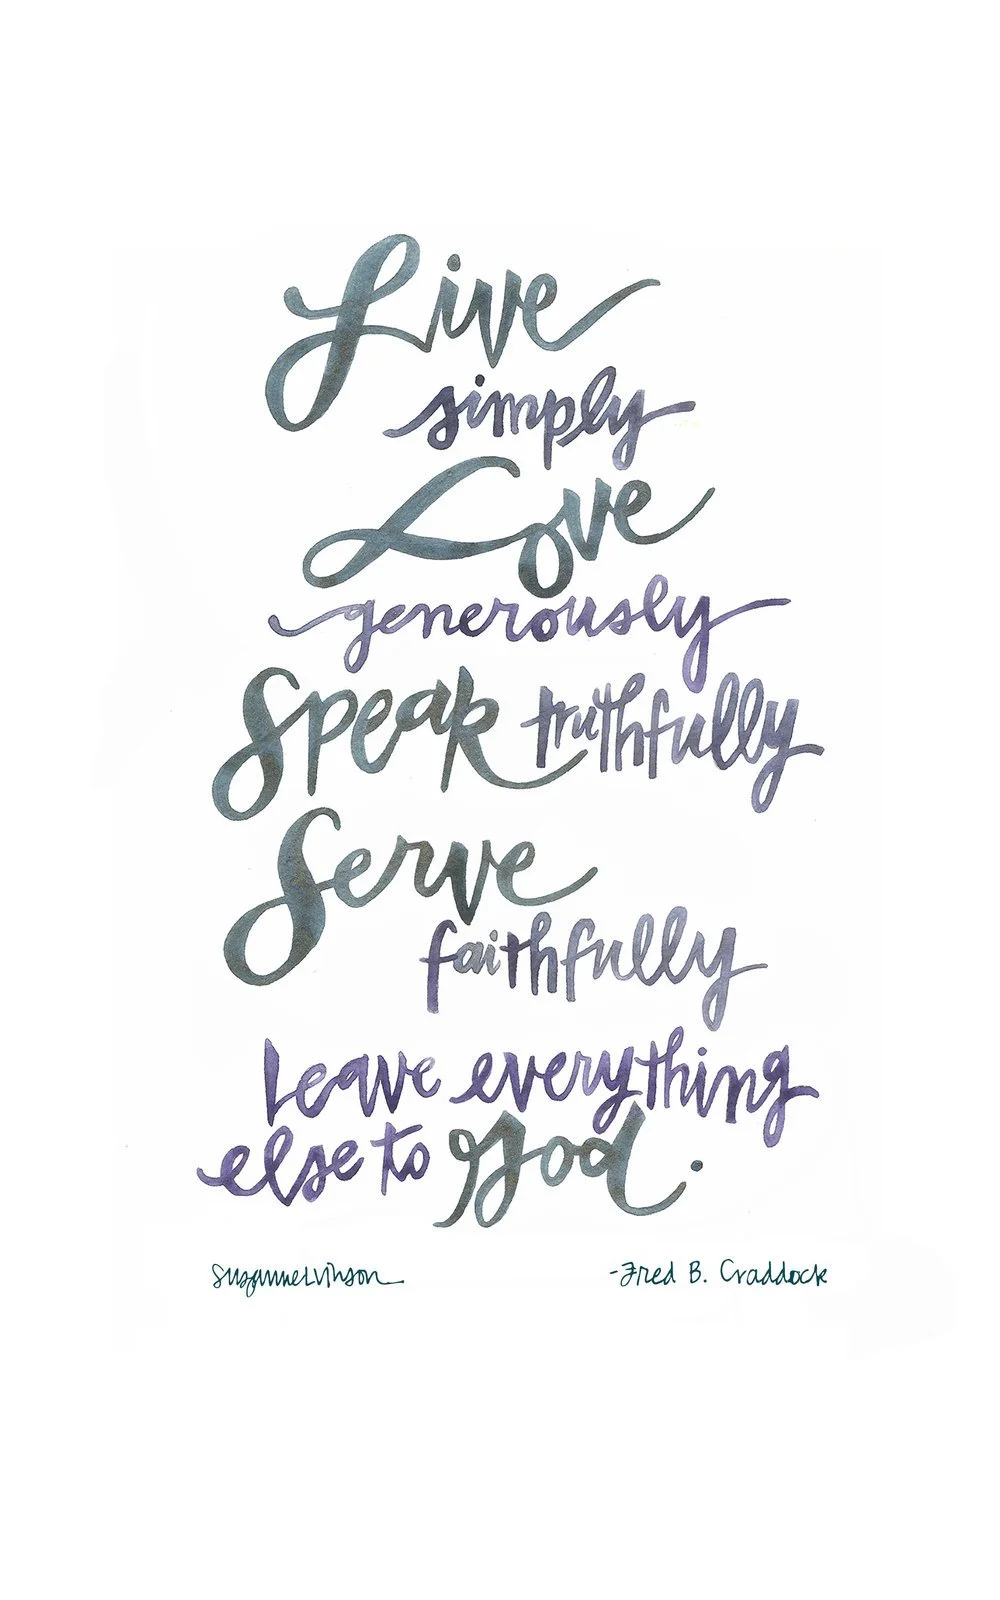 Live
simply
Love
generously
Speak truthfully
Serve
faithfully
Leave everything
else to God.
suzannelvinson
-Fred B. Craddock